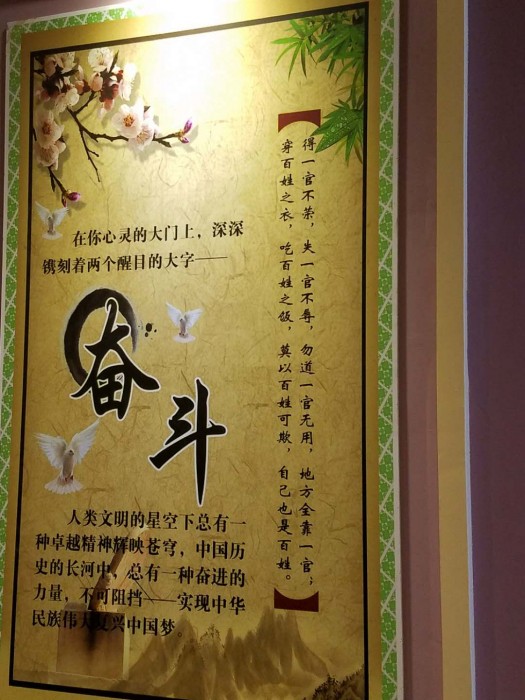 在你心灵的大门上，深深
镌刻着两个醒目的大字——
奋
斗
人类文明的星空下总有一
种卓越精神辉映苍穹，中国历
史的长河中，总有一种奋进的
力量，不可阻挡——实现中华
民族伟大复兴中国梦。
得一官不荣，失一官不辱，勿道一官无用，地方全靠一官；
穿百姓之衣，吃百姓之饭，莫以百姓可欺，自己也是百姓。